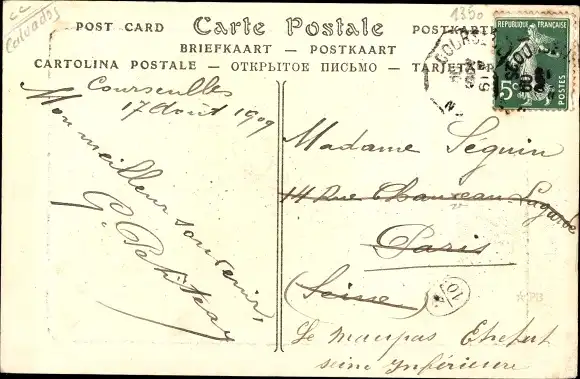 CC
Calvados
1350
POST CARD Carte Postale POSTKARTE
BRIEFKAART — POSTKAART
CARTOLINA POSTALE — ОТКРЫТОЕ ПИСЬМО — TARJETA
REPUBLIQUE FRANÇAISE
5c POSTES
Courseulles
17 Août 1909
Mon meilleur souvenir,
G. Petitjean
Madame Séguin
14 Rue Chauveau Lagarde
Paris
(Seine)
Le Maupas Etretat
seine inférieure